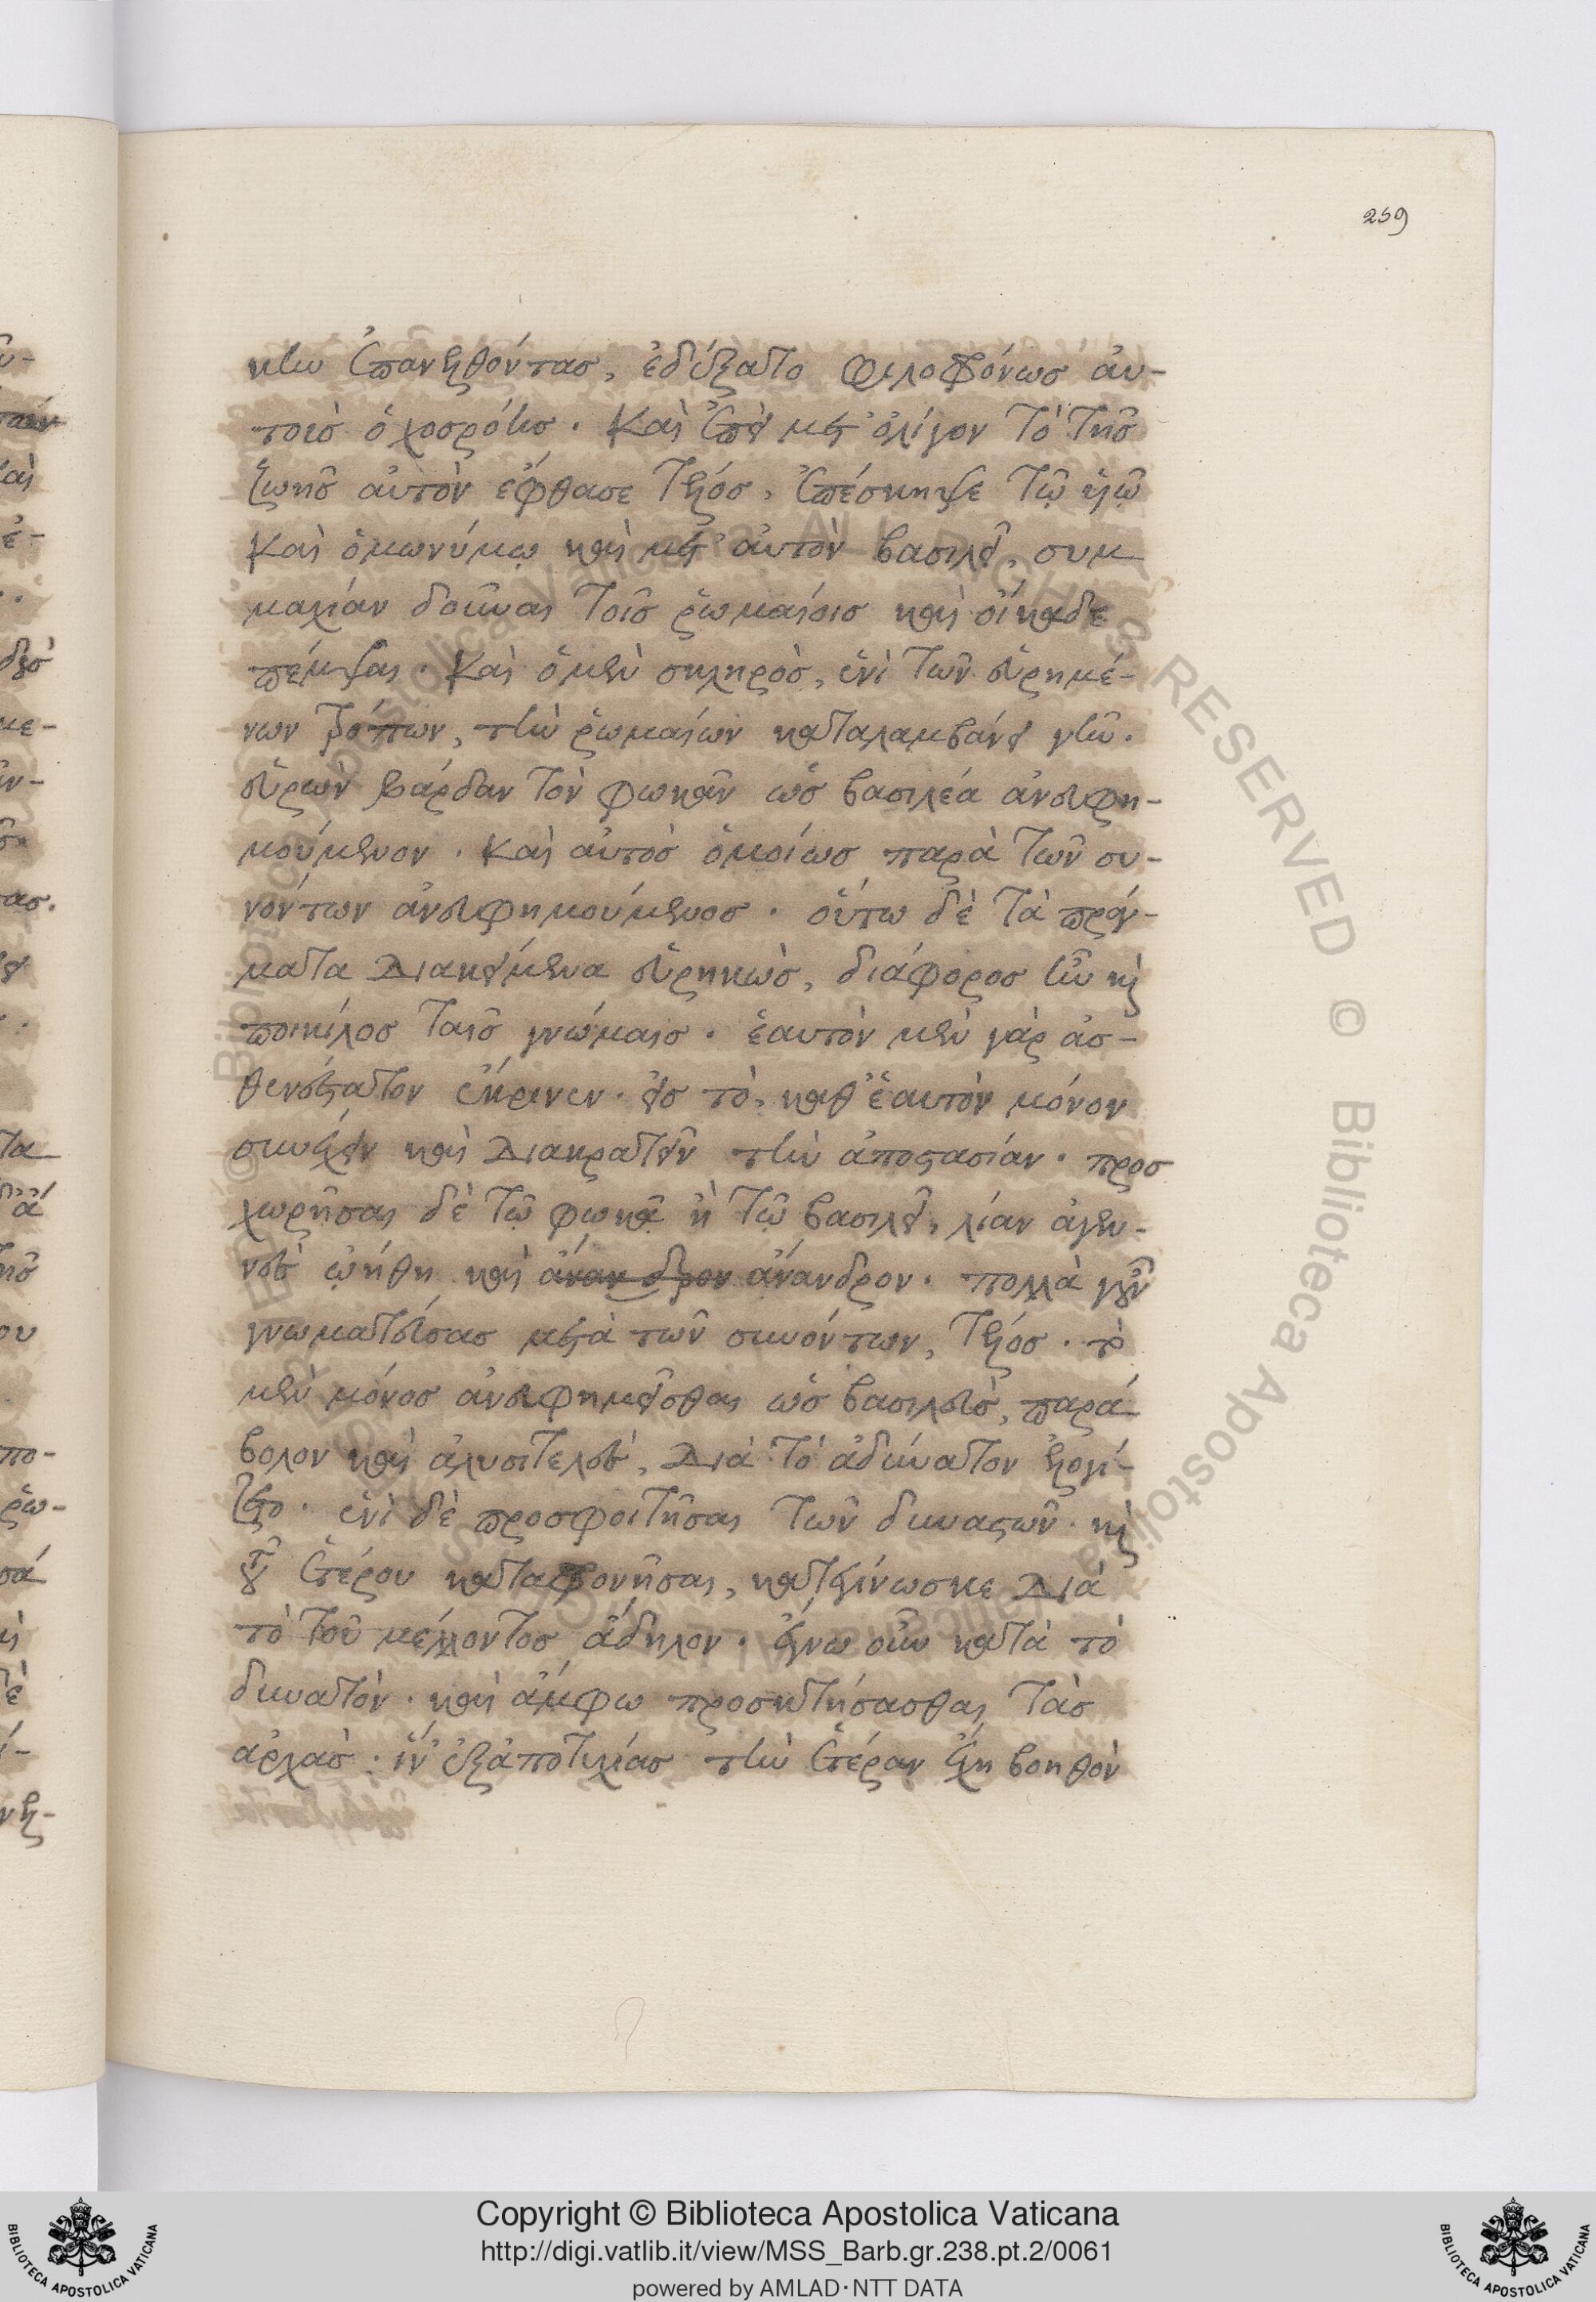 259
κὴν ἐπανελθόντας, ἐδέξατο φιλοφρόνως αὐ-
τοὺς ὁ χοσρόης. καὶ ἐπεὶ μετ' ὀλίγον τὸ τῆς
ζωῆς αὐτὸν ἔφθασε τέλος, ἐπέσκηψε τῷ υἱῷ
καὶ ὁμωνύμῳ καὶ μετ' αὐτὸν βασιλεῖ, συμ
μαχίαν δοῦναι τοῖς ῥωμαίοις καὶ οἴκαδε
πέμψαι. καὶ ὁ μὲν σκληρὸς, ἑνὶ τῶν εἰρημέ-
νων τρόπων, τὴν ῥωμαίων καταλαμβάνει γῆν.
εὑρὼν βάρδαν τὸν φωκᾶν ὡς βασιλέα ἀνευφη-
μούμενον. καὶ αὐτὸς ὁμοίως παρὰ τῶν συ-
νόντων ἀνευφημούμενος. οὕτω δὲ τὰ πράγ-
ματα διακείμενα εὑρηκὼς, διάφορος ἦν καὶ
ποικίλος ταῖς γνώμαις. ἑαυτὸν μὲν γὰρ ἀσ-
θενέστατον ἔκρινεν. εἰς τὸ, καθ' ἑαυτὸν μόνον
συνέχειν καὶ διακρατεῖν τὴν ἀποστασίαν. προσ
χωρῆσαι δὲ τῷ φωκᾷ ἢ τῷ βασιλεῖ, λίαν ἀγεν-
νὲς ᾠήθη καὶ ἄνανδρον ἄνανδρον. πολλὰ γοῦν
γνωματεύσας μετὰ τῶν συνόντων, τέλος. τὸ
μὲν μόνος ἀνευφημεῖσθαι ὡς βασιλεὺς, παρά
βολον καὶ ἀλυσιτελὲς, διὰ τὸ ἀδύνατον ἐλογί-
ζετο. ἑνὶ δὲ προσφοιτῆσαι τῶν δυναστῶν. καὶ
τοῦ ἑτέρου καταφρονῆσαι, κατεγίνωσκε διὰ
τὸ τοῦ μέλλοντος ἄδηλον. ἔγνω οὖν κατὰ τὸ
δυνατὸν. καὶ ἄμφω προσκτήσασθαι τὰς
ἀρχὰς. ἵν' ἐξ ἀποτυχίας τὴν ἑτέραν ἔχῃ βοηθὸν
Copyright © Biblioteca Apostolica Vaticana
http://digi.vatlib.it/view/MSS_Barb.gr.238.pt.2/0061
powered by AMLAD·NTT DATA